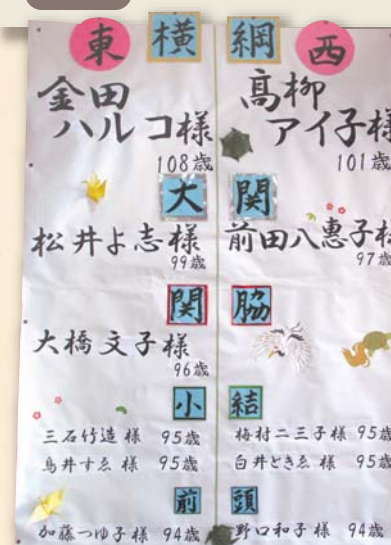 東 横綱 西
金田
ハルコ様
108歳
髙柳
アイ子様
101歳
大関
松井よ志様
99歳
前田八惠子様
97歳
関脇
大橋文子様
96歳
小結
三石竹造様 95歳
鳥井すゑ様 95歳
梅村二三子様 95歳
白井ときゑ様 95歳
前頭
加藤つゆ子様 94歳
野口和子様 94歳